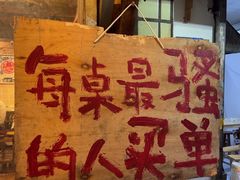 每桌最骚
的人买单